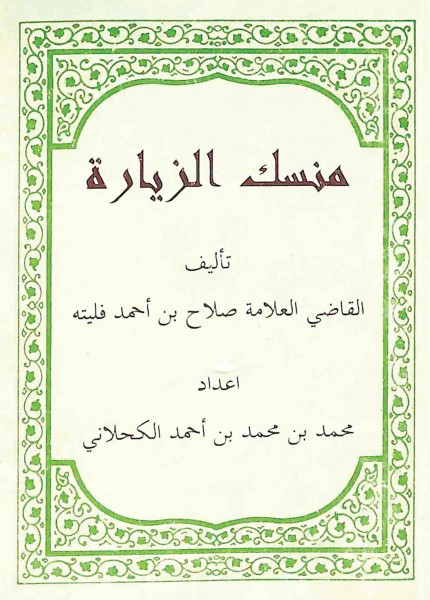 منسك الزيارة
تأليف
القاضي العلامة صلاح بن أحمد فليته
اعداد
محمد بن محمد بن أحمد الكحلاني